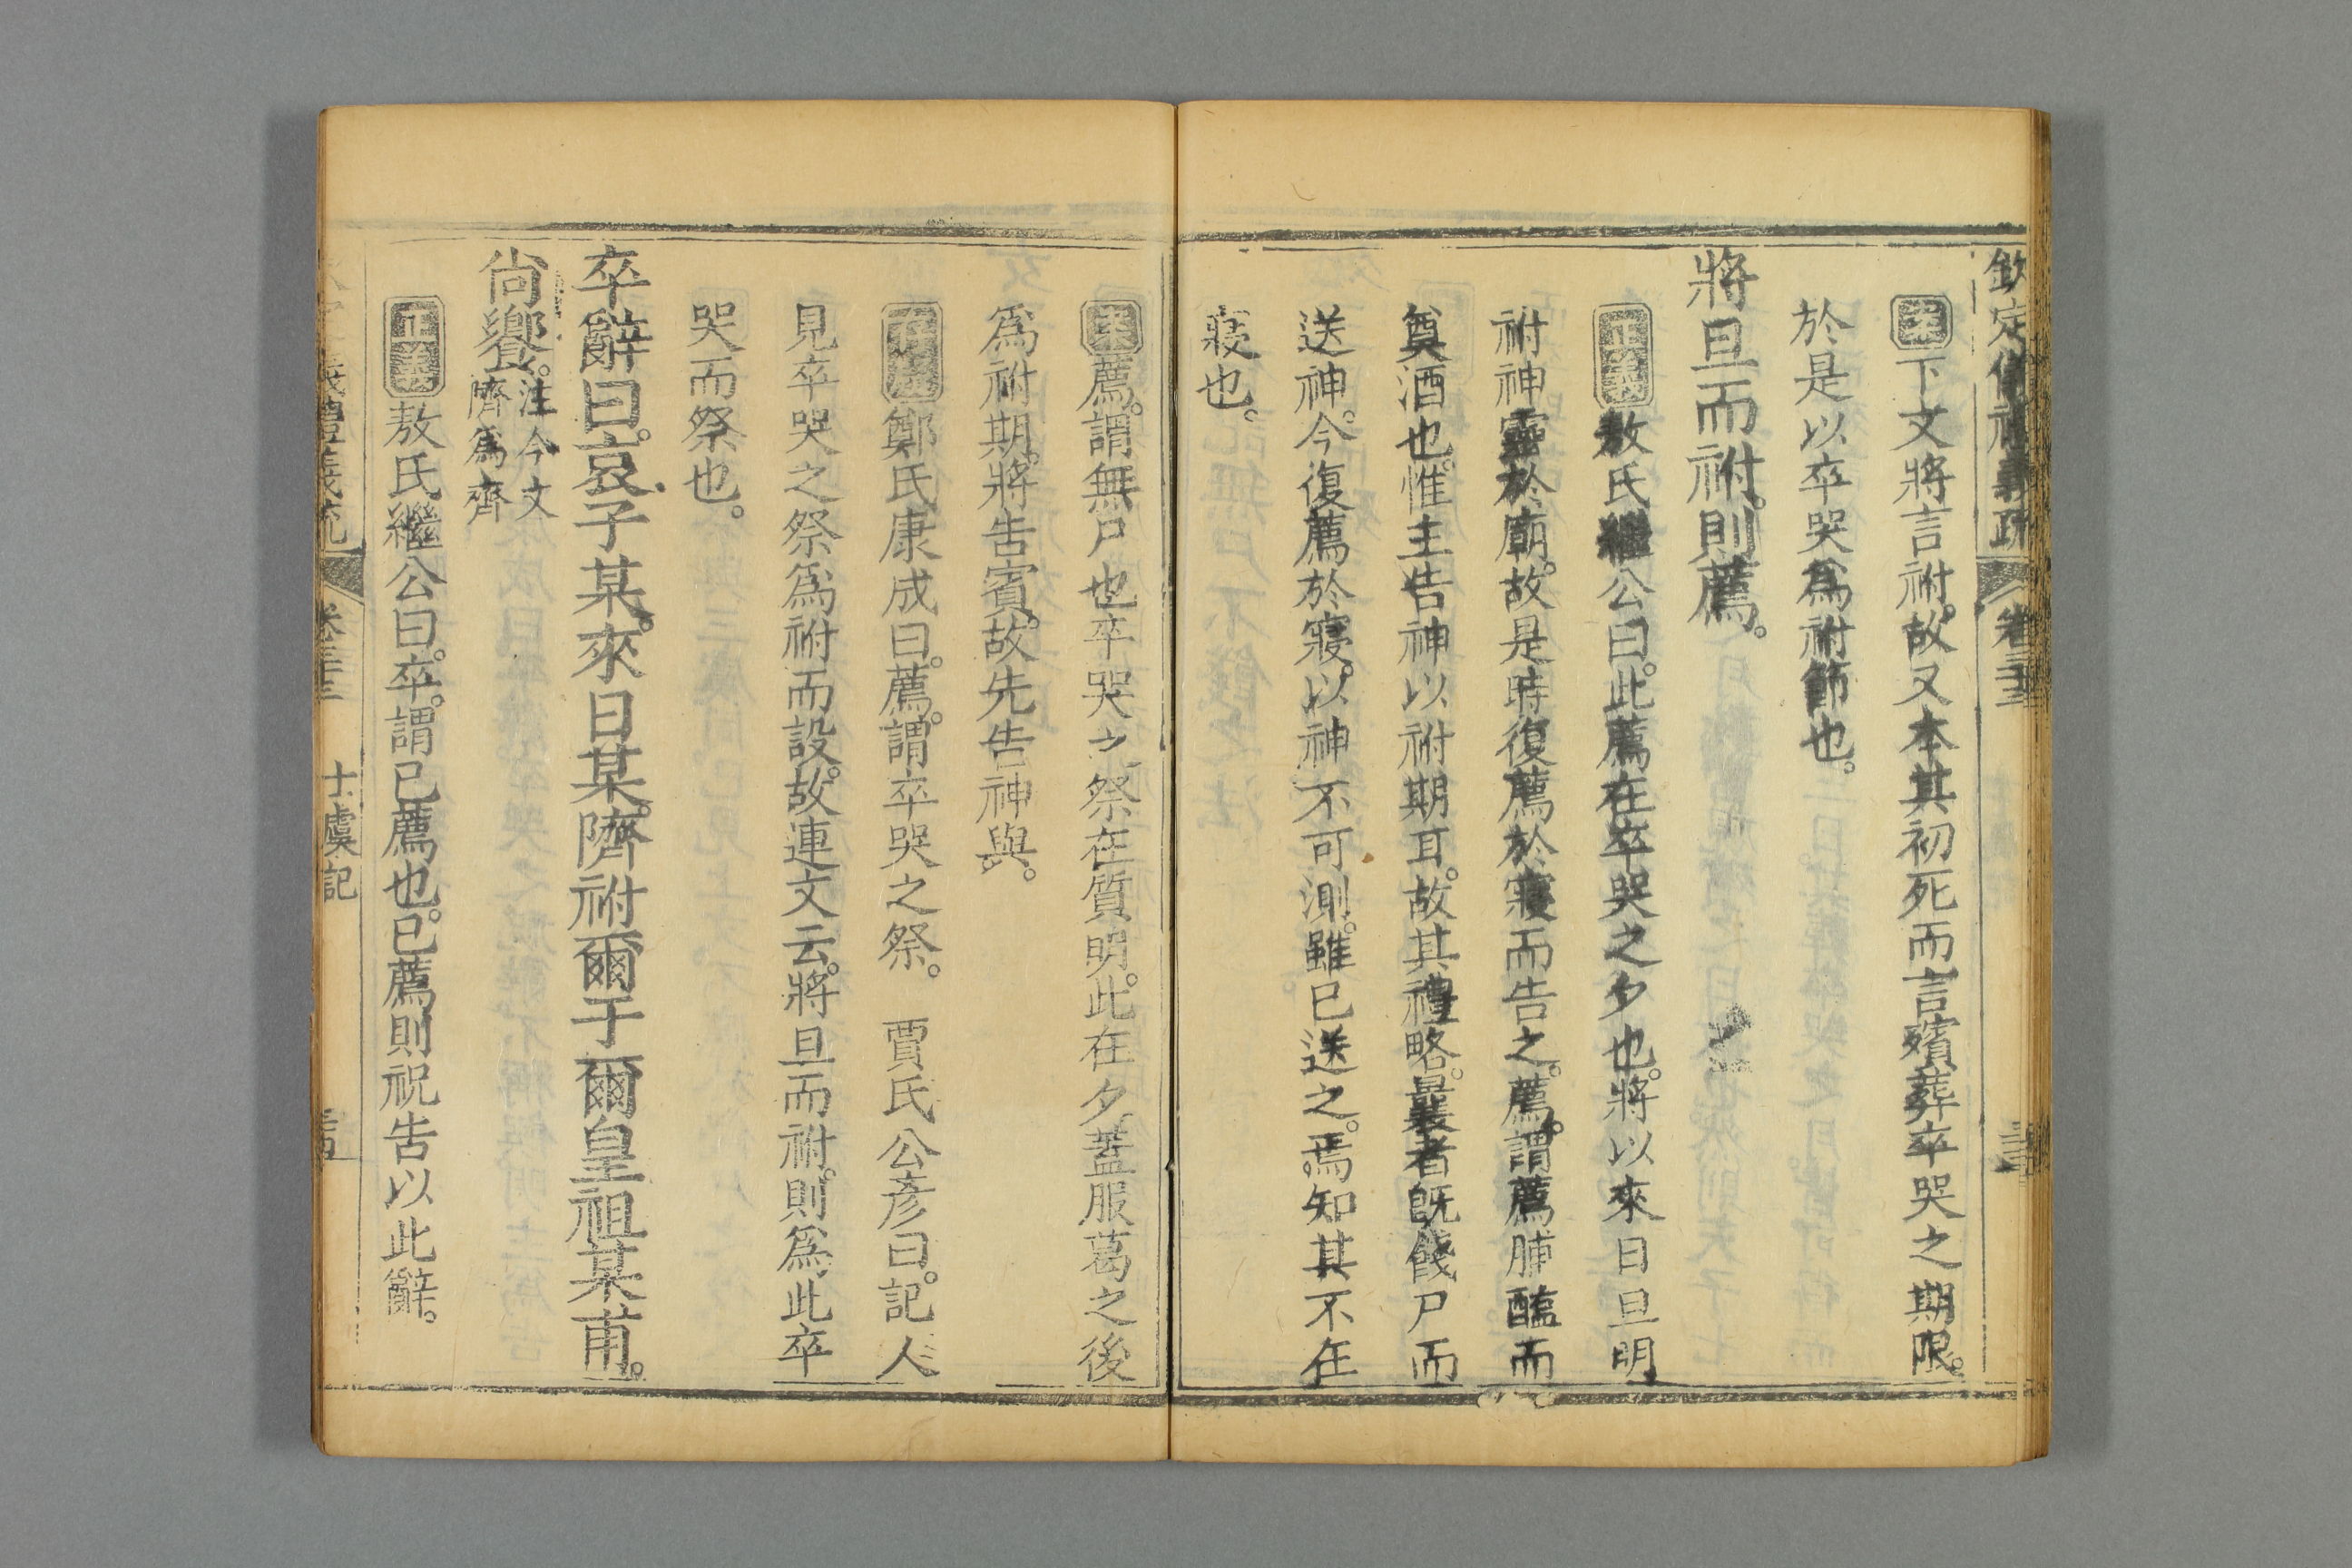 欽定儀禮義疏 卷三十三
案下文將言祔。故又本其初死而言殯葬卒哭之期限。
於是以卒哭爲祔節也。
將旦而祔。則薦。
正義敖氏繼公曰。此薦在卒哭之夕也。將以來日旦明
祔神靈於廟。故是時復薦於寢而告之。薦。謂薦脯醢而
奠酒也。惟主告神以祔期耳。故其禮略。曩者旣餞尸而
送神。今復薦於寢。以神不可測。雖已送之。焉知其不在
寢也。
案薦。謂無尸也卒哭之祭在質明。此在夕。蓋服葛之後
爲祔期。將告賓。故先告神與。
正義鄭氏康成曰。薦。謂卒哭之祭。 賈氏公彥曰。記人
見卒哭之祭爲祔而設。故連文云。將旦而祔。則爲此卒
哭而祭也。
卒辭曰。哀子某。來日某。隮祔爾于爾皇祖某甫。
尙饗。注今文
隮爲齊
正義敖氏繼公曰。卒。謂已薦也。已薦則祝告以此辭。
義禮義疏 卷三十三 士虞記